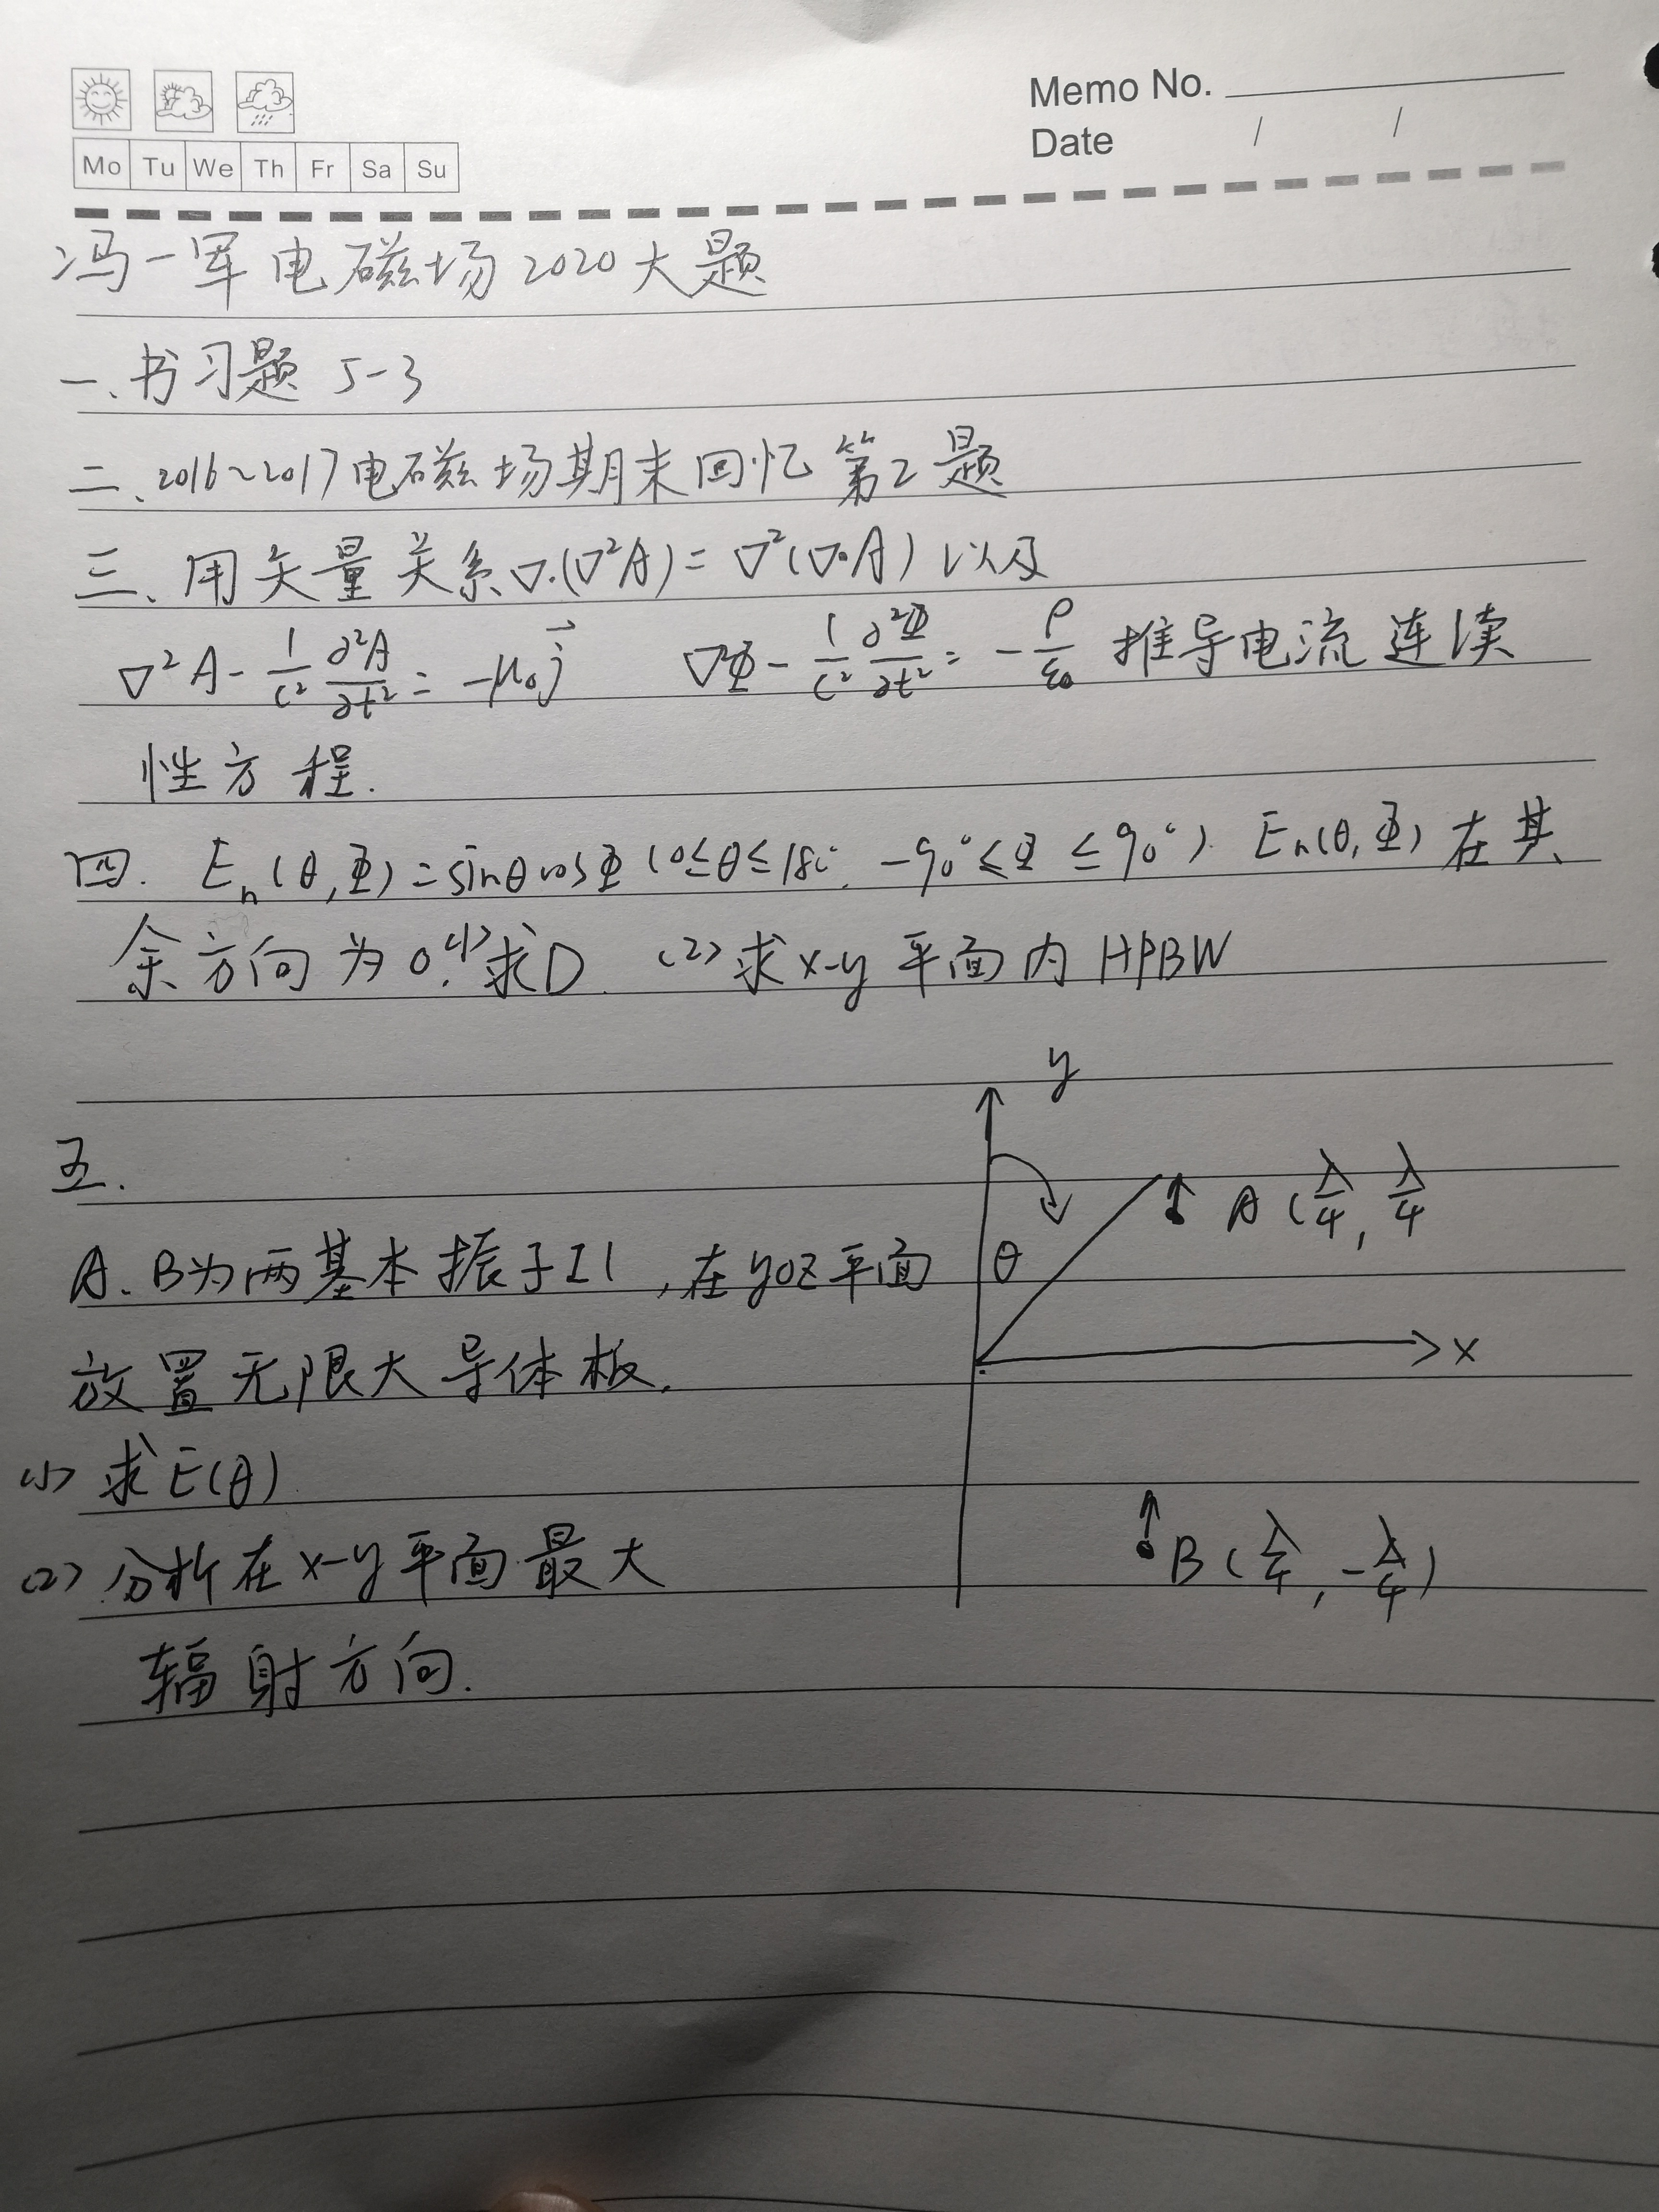 Memo No.
Date / /
Mo Tu We Th Fr Sa Su
冯一军电磁场2020大题
一、书习题 5-3
二、2016~2017电磁场期末回忆第2题
三、用矢量关系∇·(∇²A)=∇²(∇·A) 以及
∇²A - 1/c² ∂²A/∂t² = -μ₀j⃗ ∇Φ - 1/c² ∂²Φ/∂t² = -ρ/ε₀ 推导电流连续
性方程.
四. Eₙ(θ,Φ)=sinθcosΦ (0≤θ≤180°, -90°≤Φ≤90°). Eₙ(θ,Φ)在其
余方向为0.(1)求D (2)求x-y平面内HPBW
y
五.
A(λ/4, λ/4
A、B为两基本振子Il,在yoz平面
θ
放置无限大导体板.
x
(1) 求E(θ)
(2) 分析在x-y平面最大
B(λ/4, -λ/4)
辐射方向.